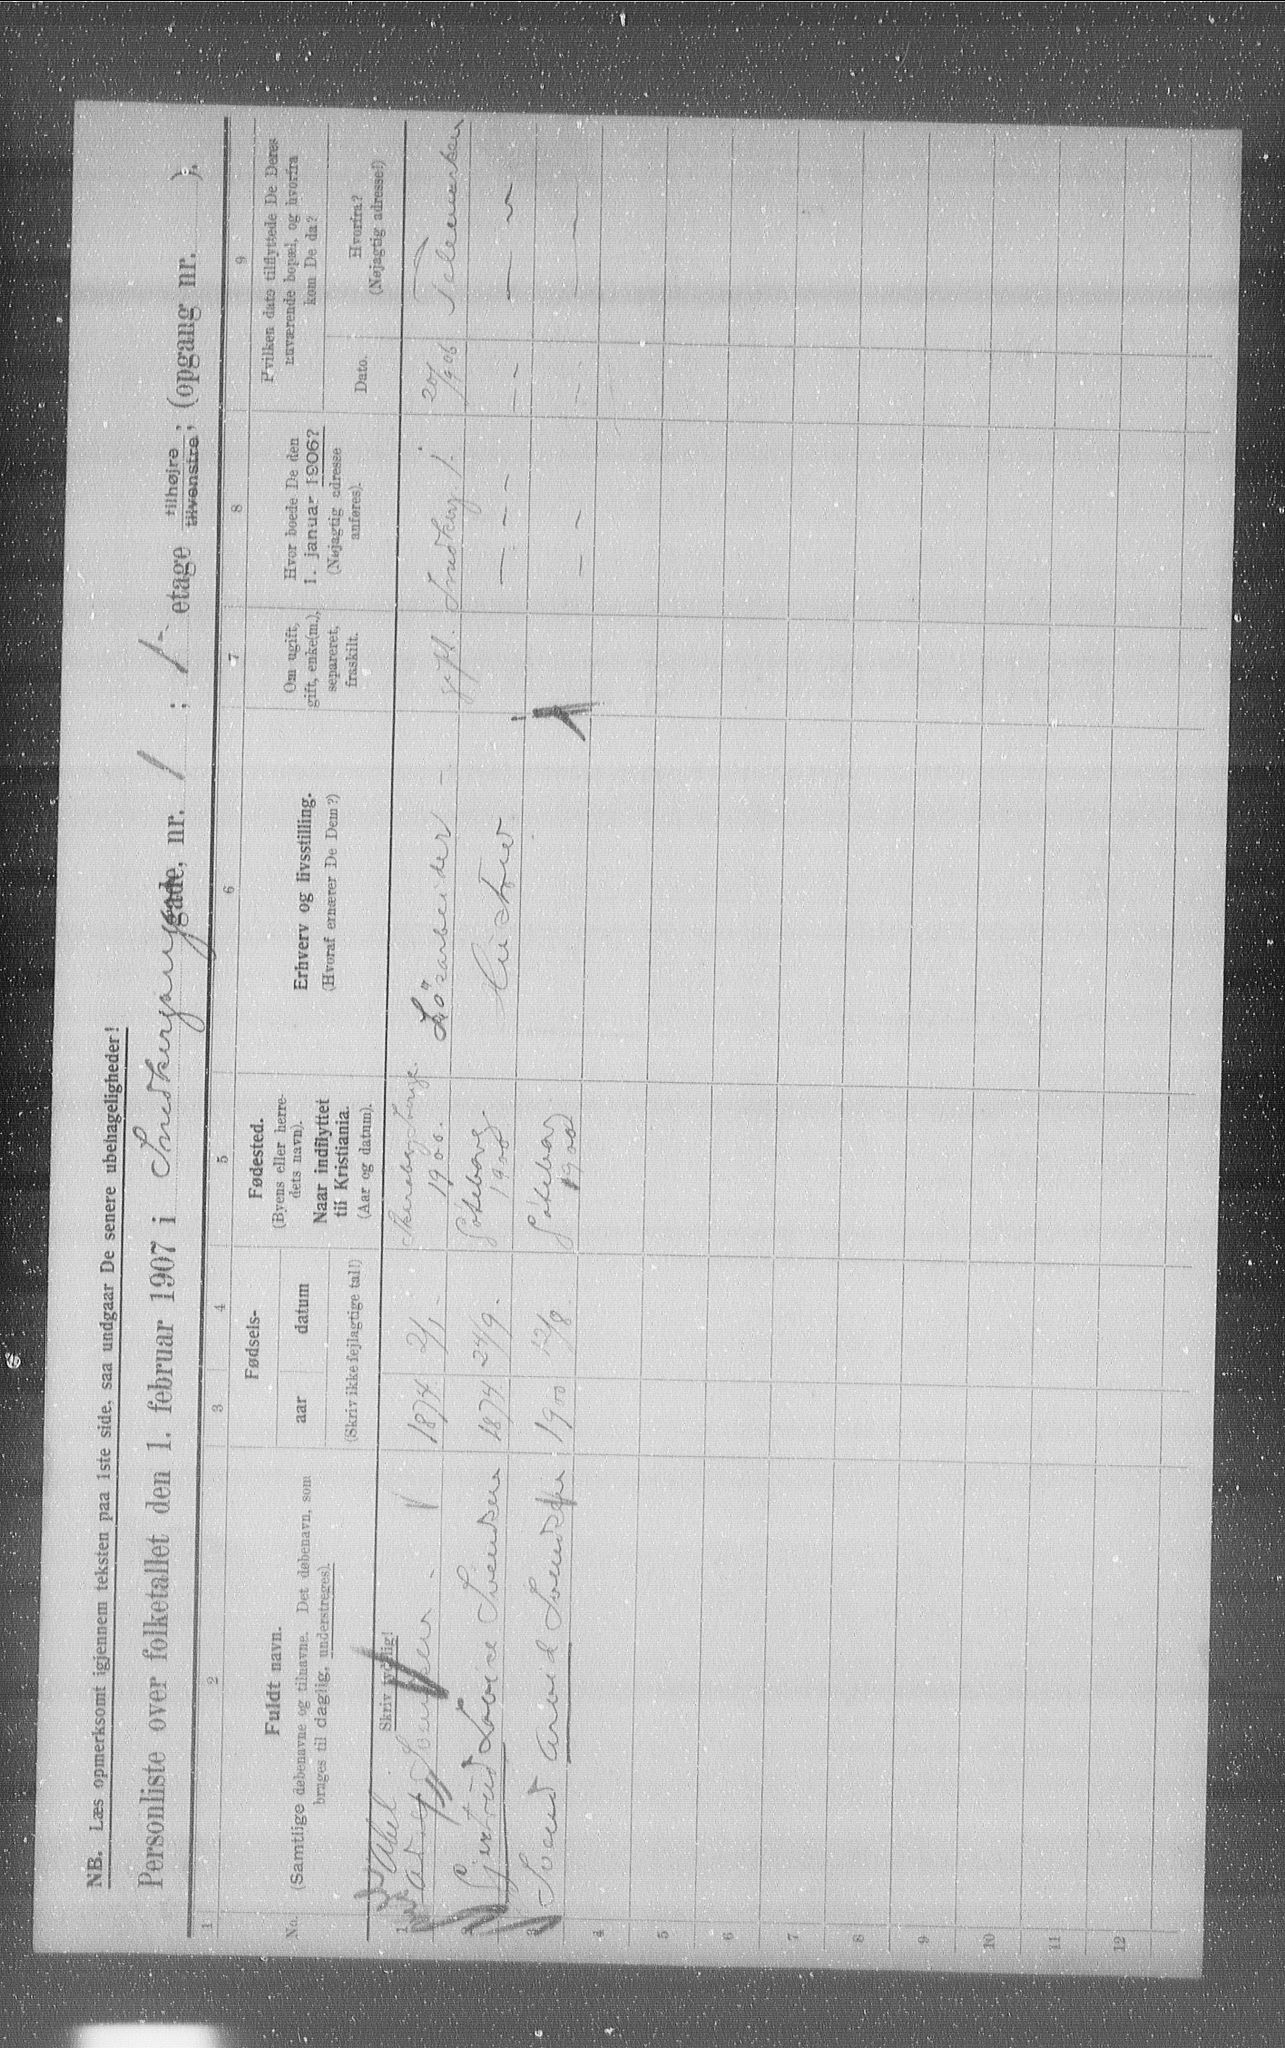 NB. Læs opmerksomt igjennem teksten paa 1ste side, saa undgaar De senere ubehageligheder!
Personliste over folketallet den 1. februar 1907 i Snedkergangen gade, nr. 1 ; 1 etage tilhøjre tilvenstre, (opgang nr. ).
1 2 3 4 5 6 7 8 9
No.
Fuldt navn.
(Samtlige døbenavne og tilnavne. Det døbenavn, som
bruges til daglig, understreges).
Skriv tydelig!
Fødsels-
aar datum
(Skriv ikke fejlagtige tal!)
Fødested.
(Byens eller herre-
dets navn).
Naar indflyttet
til Kristiania.
(Aar og datum).
Erhverv og livsstilling.
(Hvoraf ernærer De Dem?)
Om ugift,
gift, enke(m.),
separeret,
fraskilt.
Hvor boede De den
1. januar 1906?
(Nøjagtig adresse
anføres).
Hvilken dato tilflyttede De Deres
nuværende bopæl, og hvorfra
kom De da?
Dato.
Hvorfra?
(Nøjagtig adresse!)
Abel
1 Svendsen 1874 2/1 Sverige 1900. Lösarbeider gift. Snedkerg. 1. 20/1906 Telemarken
2 Gjertrud Lovise Svendsen 1874 24/9. Göteborg 1900 Hustru — — — - - — —
3 Svend Arvid Svendsen 1900 12/8. Göteborg 1900 — — - - — —
4
5
6
7
8
9
10
11
12